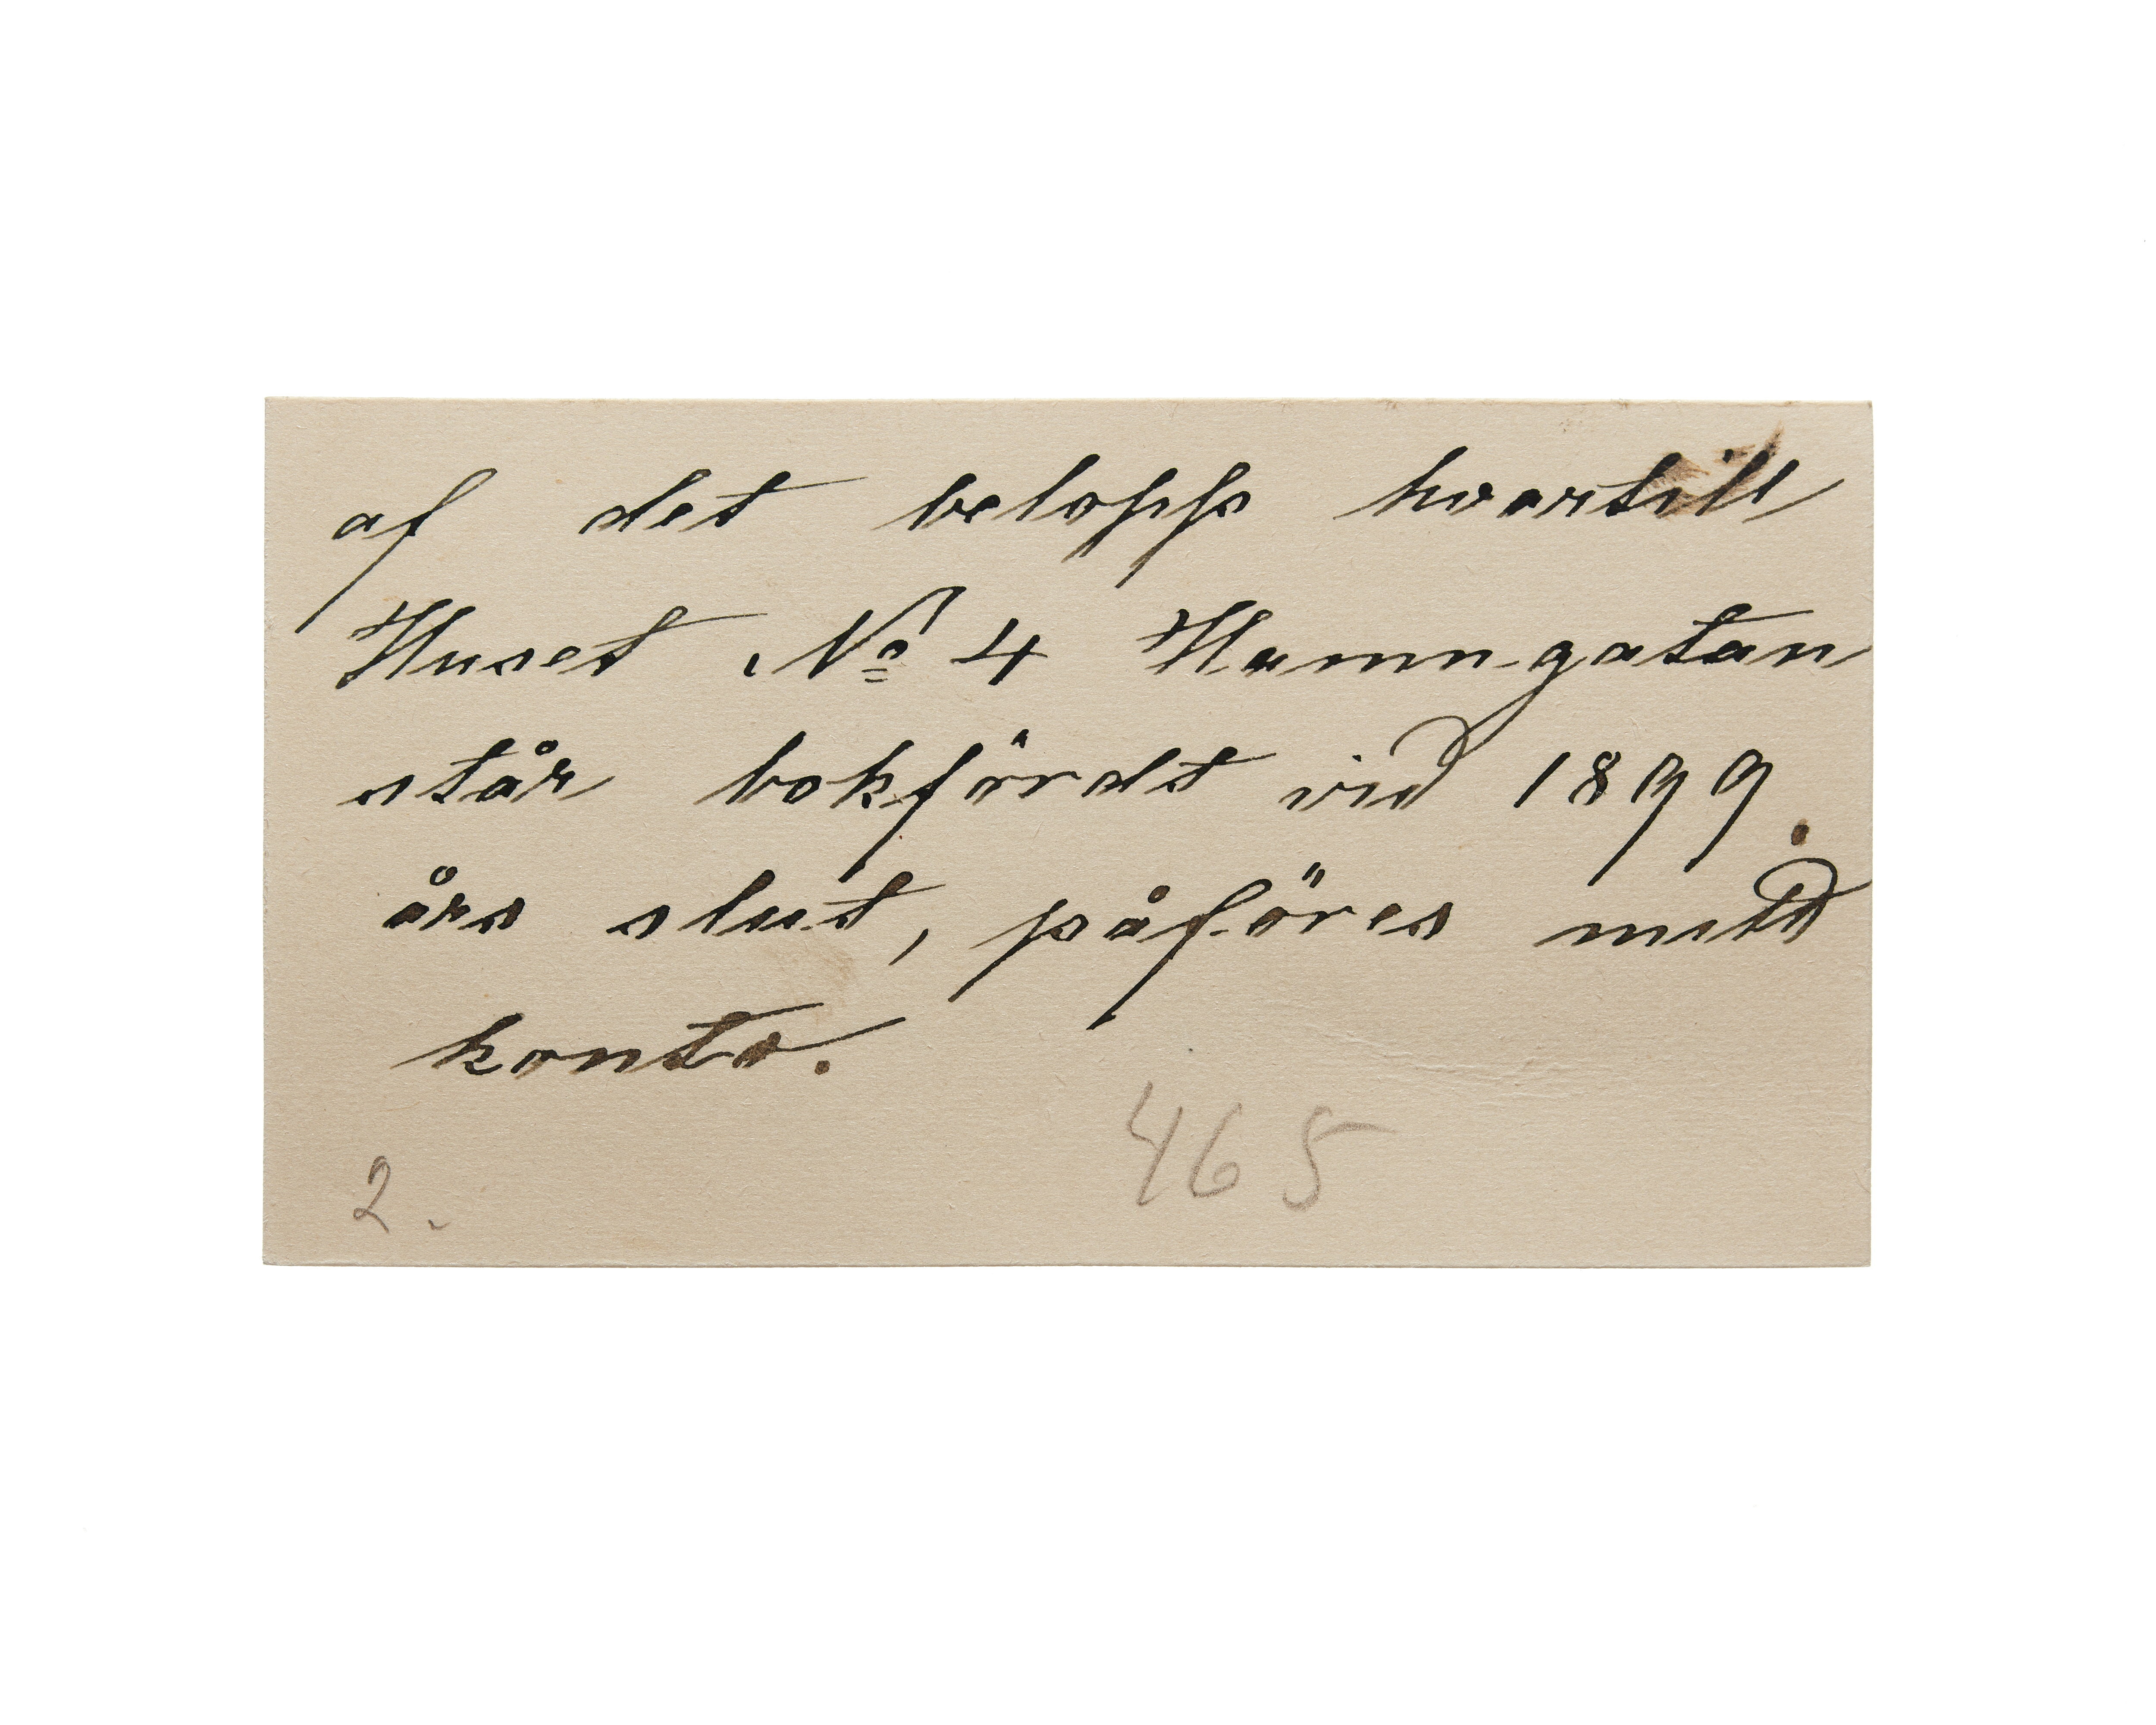 af det belopp hvartill
Huset No 4 Hamngatan
står bokfördt vid 1899.
års slut, påföres mitt
konto.
465
2.